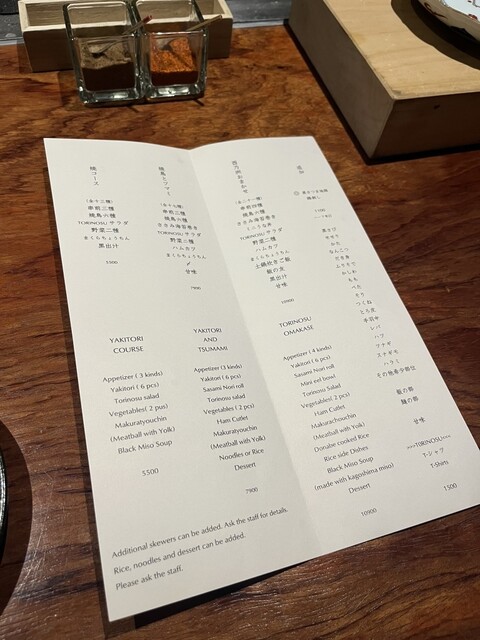 焼コース
(全十三種)
串前三種
焼鳥六種
TORINOSU サラダ
野菜二種
まくらちょうちん
黒出汁
5500
焼鳥とツマミ
(全十七種)
串前三種
焼鳥六種
ささみ海苔巻き
TORINOSU サラダ
野菜二種
ハムカツ
まくらちょうちん
甘味
7900
串前四種
焼鳥六種
ささみ海苔巻き
TORINOSU サラダ
野菜二種
ハムカツ
まくらちょうちん
土鍋炊きご飯
飯の友
黒出汁
甘味
10900
追加
ささみ
なんこつ
もも
つくね
とろ皮
手羽先
レバ
ハツ
ツナギ
スナギモ
ハラミ
その他希少部位
飯の部
麺の部
甘味
===TORINOSU===
T-シャツ
T-Shirts
1500
YAKITORI
COURSE
Appetizer (3 kinds)
Yakitori ( 6 pcs)
Torinosu salad
Vegetables( 2 pus)
Makuratyouchin
(Meatball with Yolk)
Black Miso Soup
5500
YAKITORI
AND
TSUMAMI
Appetizer (3 kinds)
Yakitori ( 6 pcs)
Sasami Nori roll
Torinosu salad
Vegetables(2 pcs)
Ham Cutlet
Makuratyouchin
(Meatball with Yolk)
Noodles or Rice
Dessert
7900
TORINOSU
OMAKASE
Appetizer ( 4 kinds)
Yakitori ( 6 pcs)
Sasami Nori roll
Mini eel bowl
Torinosu Salad
Vegetables( 2 pcs)
Ham Cutlet
Makurachouchin
(Meatball with Yolk)
Donabe cooked Rice
Rice side Dishes
Black Miso Soup
(made with kagoshima miso)
Dessert
10900
Additional skewers can be added. Ask the staff for details.
Rice, noodles and dessert can be added.
Please ask the staff.